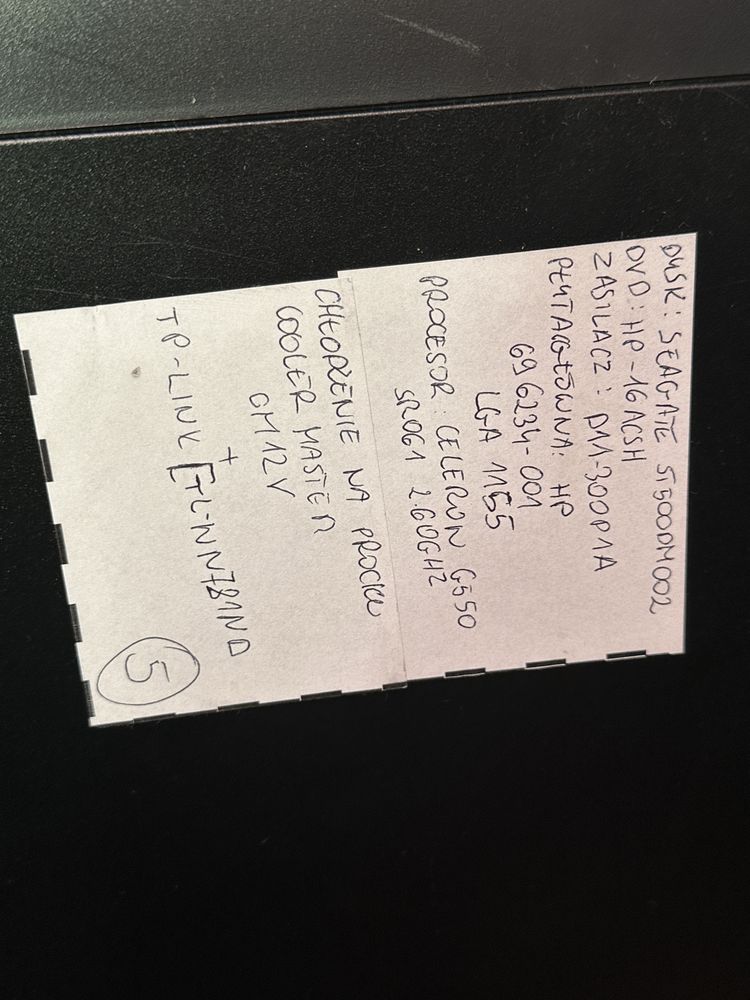 DYSK: SEAGATE ST500DM002
DVD: HP-16ACSH
ZASILACZ: D11-300P1A
PŁYTA GŁÓWNA: HP
696234-001
LGA 1155
PROCESOR: CELERON G550
SR061 2.60GHZ
CHŁODZENIE NA PROCKU
COOLER MASTER
GM 12V
+
TP-LINK [TL-WN781ND
5